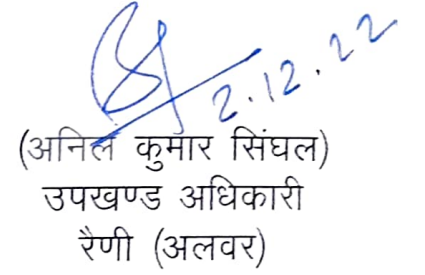 2.12.22
(अनिल कुमार सिंघल)
उपखण्ड अधिकारी
रैणी (अलवर)